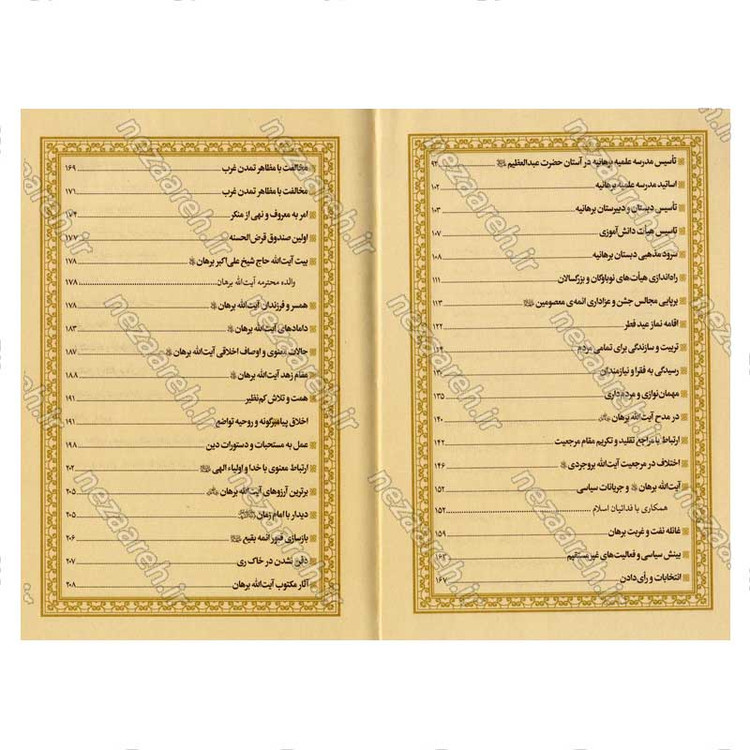 تأسیس مدرسه علمیه برهانیه در آستان حضرت عبدالعظیم ۹۴
اساتید مدرسه علمیه برهانیه ۱۰۲
تأسیس دبستان و دبیرستان برهانیه ۱۰۳
تأسیس هیأت دانش‌آموزی ۱۰۷
سرود مذهبی دبستان برهانیه ۱۰۸
راه‌اندازی هیأت‌های نوباوگان و بزرگسالان ۱۱۱
برپایی مجالس جشن و عزاداری ائمه‌ی معصومین ۱۱۳
اقامه نماز عید فطر ۱۲۲
تربیت و سازندگی برای تمامی مردم
رسیدگی به فقرا و نیازمندان
مهمان‌نوازی و مردم‌داری ۱۳۵
در مدح آیت‌الله برهان ۱۴۰
ارتباط با مراجع تقلید و تکریم مقام مرجعیت ۱۴۲
اختلاف در مرجعیت آیت‌الله بروجردی ۱۴۶
آیت‌الله برهان و جریانات سیاسی ۱۵۲
همکاری با فدائیان اسلام ۱۵۲
غائله نفت و غربت برهان ۱۵۹
بینش سیاسی و فعالیت‌های غیر مستقیم ۱۶۳
انتخابات و رأی‌دادن ۱۶۷
مخالفت با مظاهر تمدن غرب ۱۶۹
مخالفت با مظاهر تمدن غرب ۱۷۱
امر به معروف و نهی از منکر ۱۷۴
اولین صندوق قرض‌الحسنه ۱۷۷
بیت آیت‌الله حاج شیخ علی‌اکبر برهان ۱۷۸
والده محترمه آیت‌الله برهان ۱۷۸
همسر و فرزندان آیت‌الله برهان ۱۷۸
دامادهای آیت‌الله برهان ۱۸۳
حالات معنوی و اوصاف اخلاقی آیت‌الله برهان ۱۸۷
مقام زهد آیت‌الله برهان ۱۸۸
همت و تلاش کم‌نظیر ۱۹۱
اخلاق پیامبرگونه و روحیه تواضع ۱۹۱
عمل به مستحبات و دستورات دین ۱۹۸
ارتباط معنوی با خدا و اولیاء الهی ۲۰۲
برترین آرزوهای آیت‌الله برهان ۲۰۵
دیدار با امام زمان ۲۰۵
بازسازی قبور ائمه بقیع ۲۰۶
دفن نشدن در خاک ری ۲۰۷
آثار مکتوب آیت‌الله برهان ۲۰۸
nezaareh.ir
nezaareh.ir
nezaareh.ir
nezaareh.ir
nezaareh.ir
nezaareh.ir